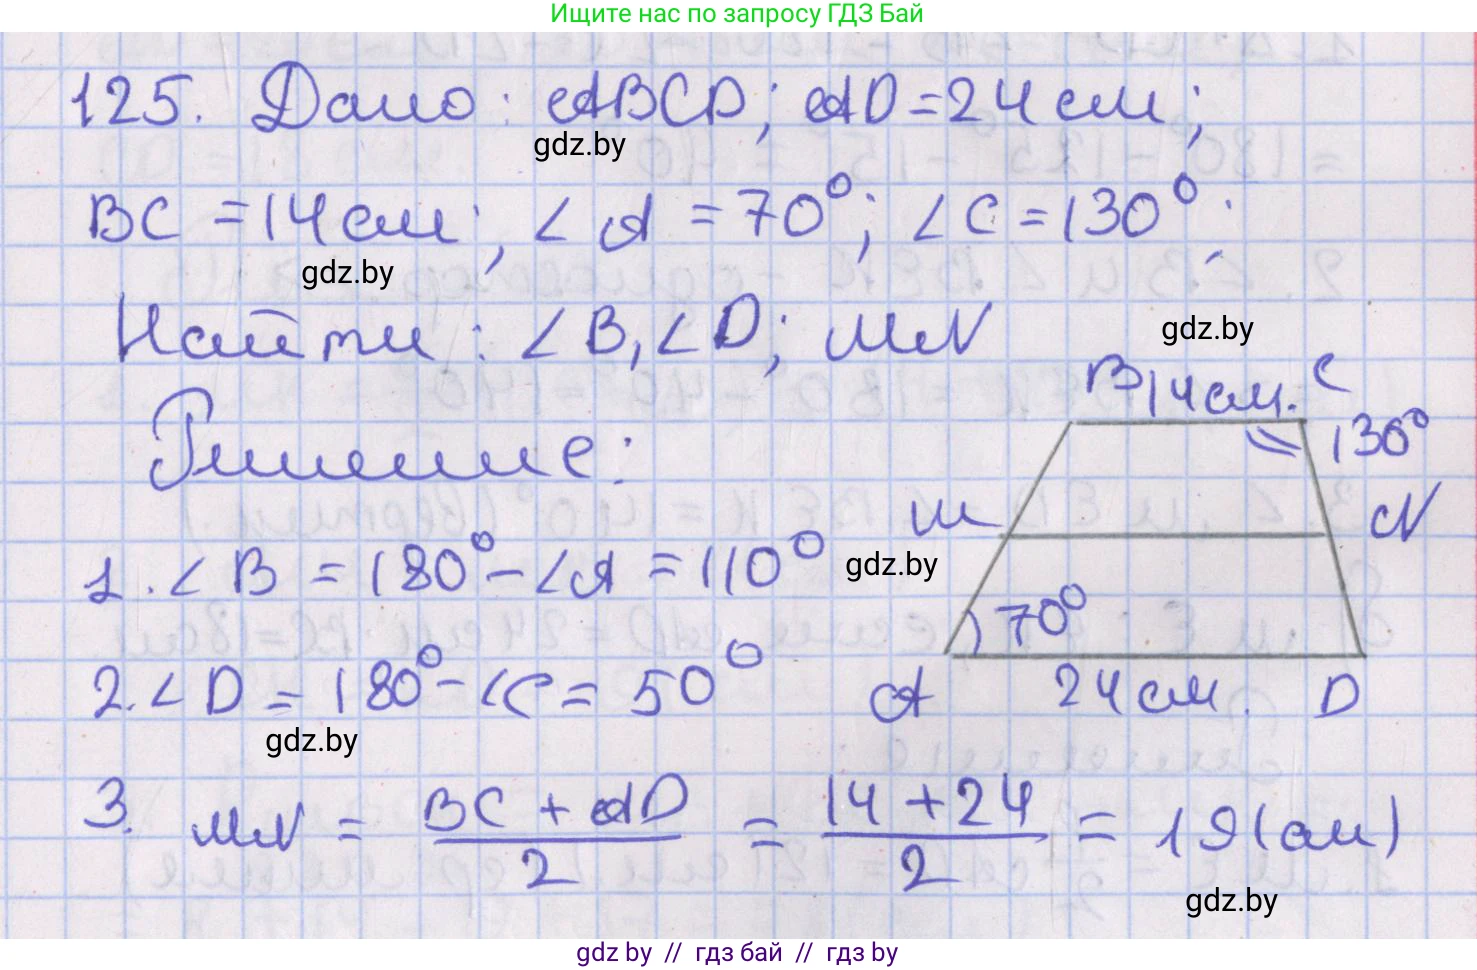 Ищите нас по запросу ГДЗ Бай
125. Дано: ABCD; AD = 24 см;
gdz.by
BC = 14 см; ∠A = 70°; ∠C = 130°;
gdz.by
Найти: ∠B, ∠D; MN
gdz.by
B 14 см. C
Решение:
130°
M
N
1. ∠B = 180° - ∠A = 110°
gdz.by
70°
2. ∠D = 180° - ∠C = 50°
A 24 см. D
gdz.by
3. MN = BC + AD / 2 = 14 + 24 / 2 = 19 (см)
gdz.by
gdz by // гдз бай // гдз by